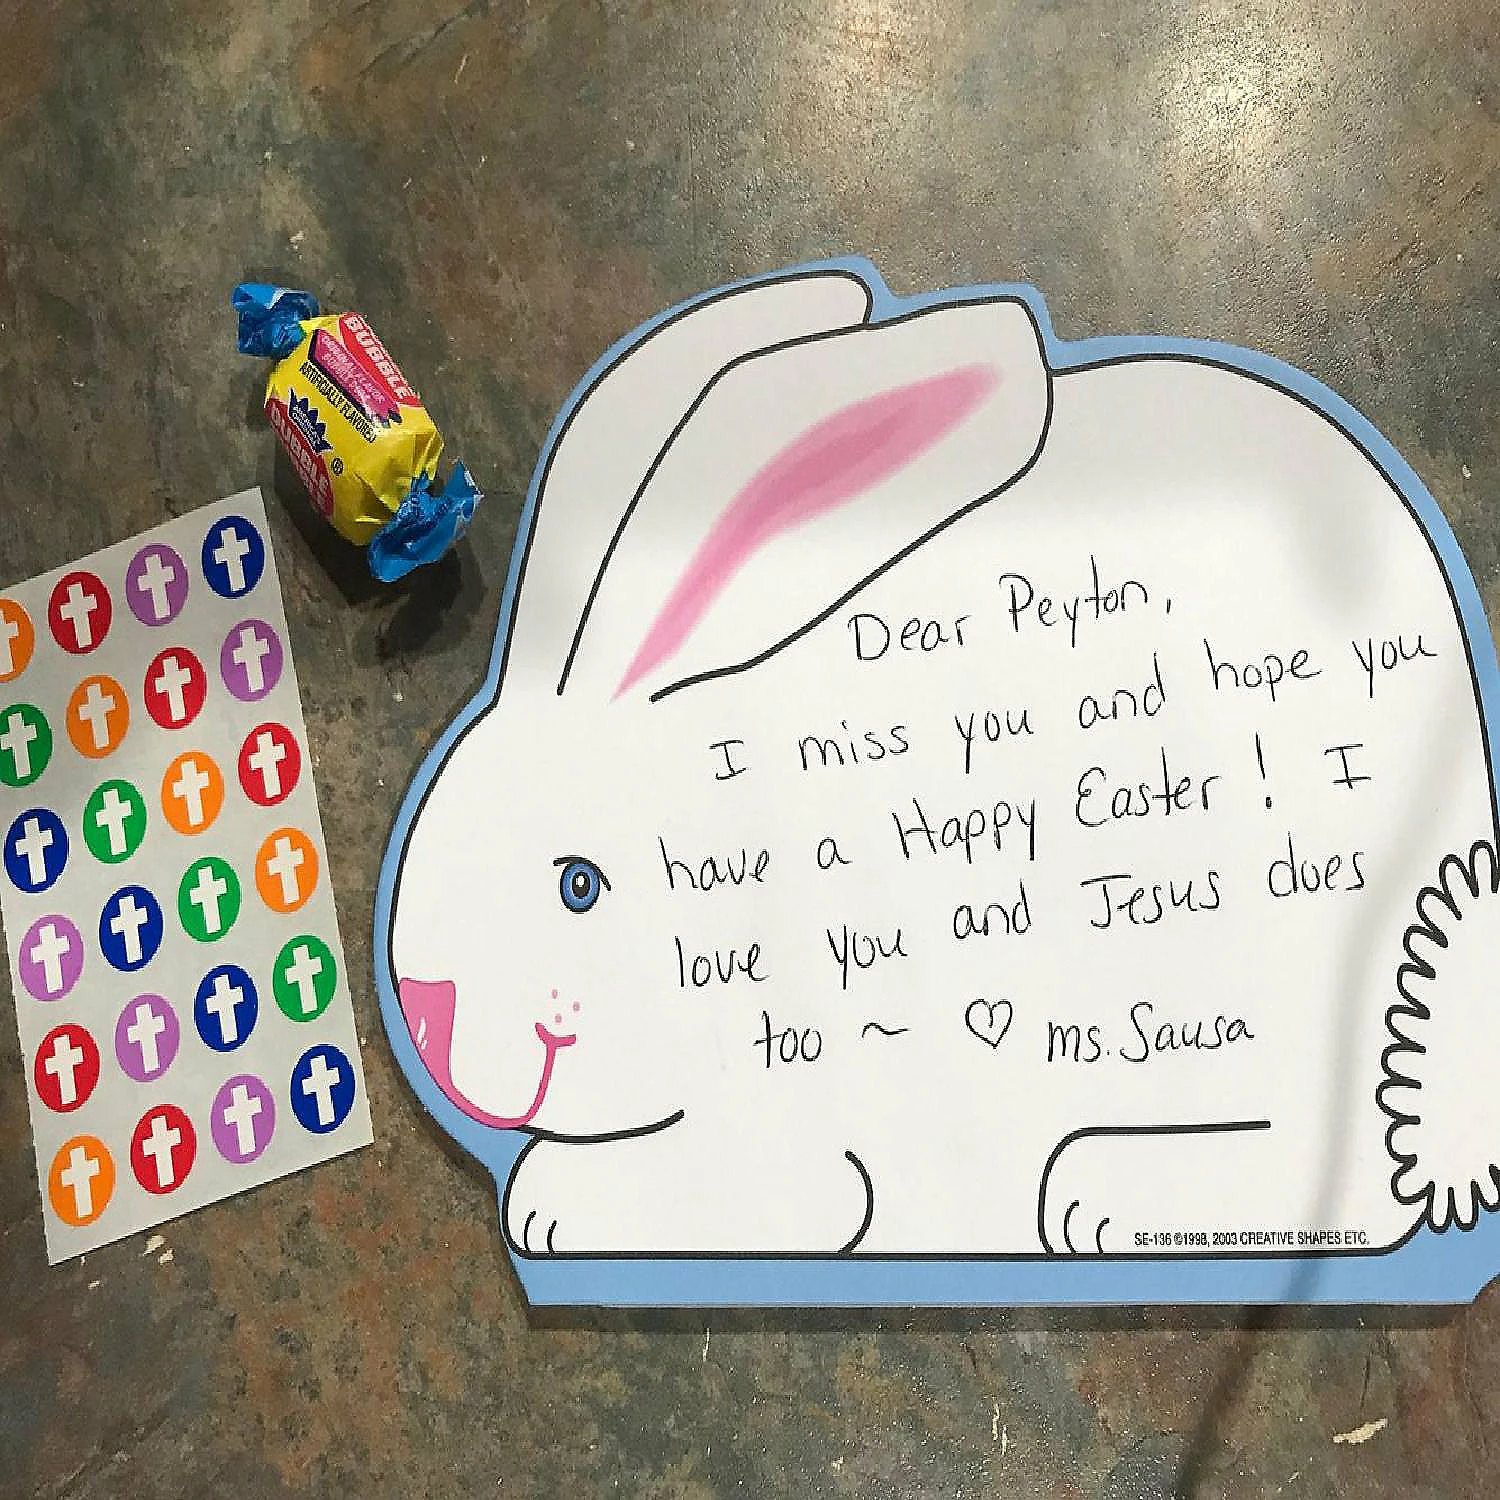 BUBBLE
ORIGINAL FLAVOR
ARTIFICIALLY FLAVORED
BUBBLE
Dear Peyton,
I miss you and hope you
have a Happy Easter! I
love you and Jesus does
too ~ ♡ ms. Sausa
SE-136 ©1998, 2003 CREATIVE SHAPES ETC.